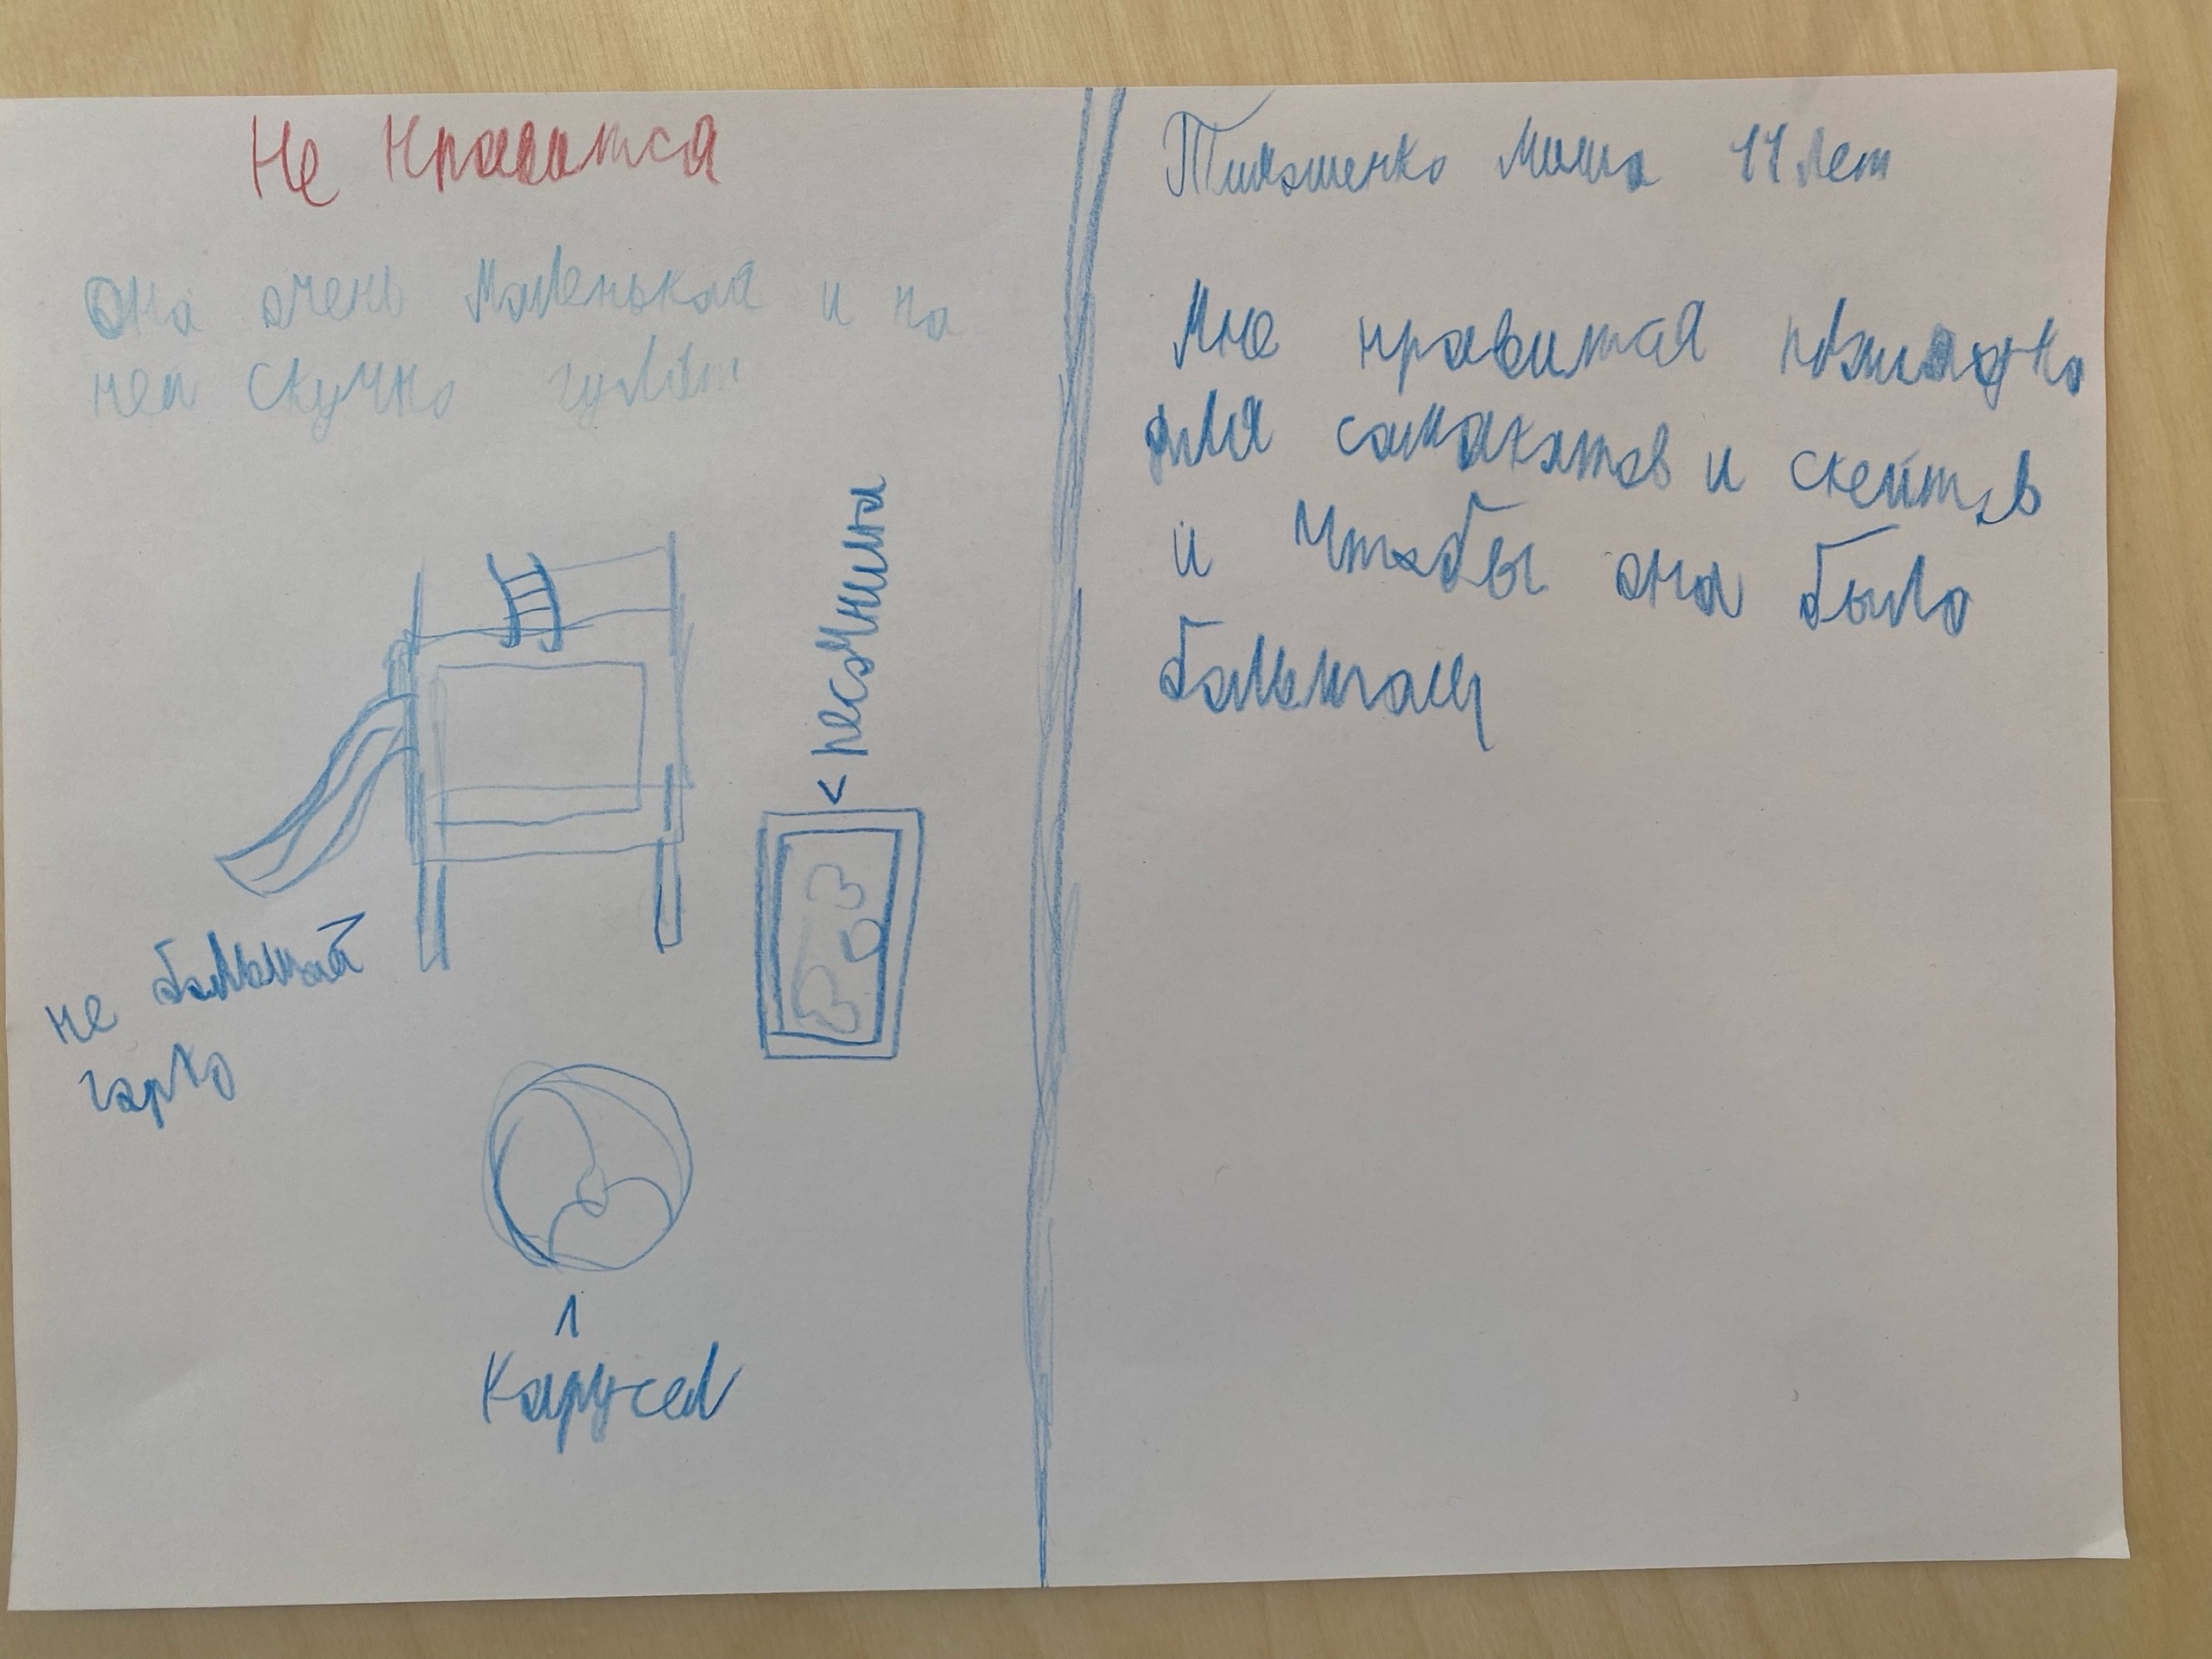 Не нравится
Она очень маленькая и на
ней скучно гулят
< песочница
не большая
гарка
Карусел
Тимошенко Миша 11 лет
Мне нравится площадка
для самакатов и скейтов
и чтобы она была